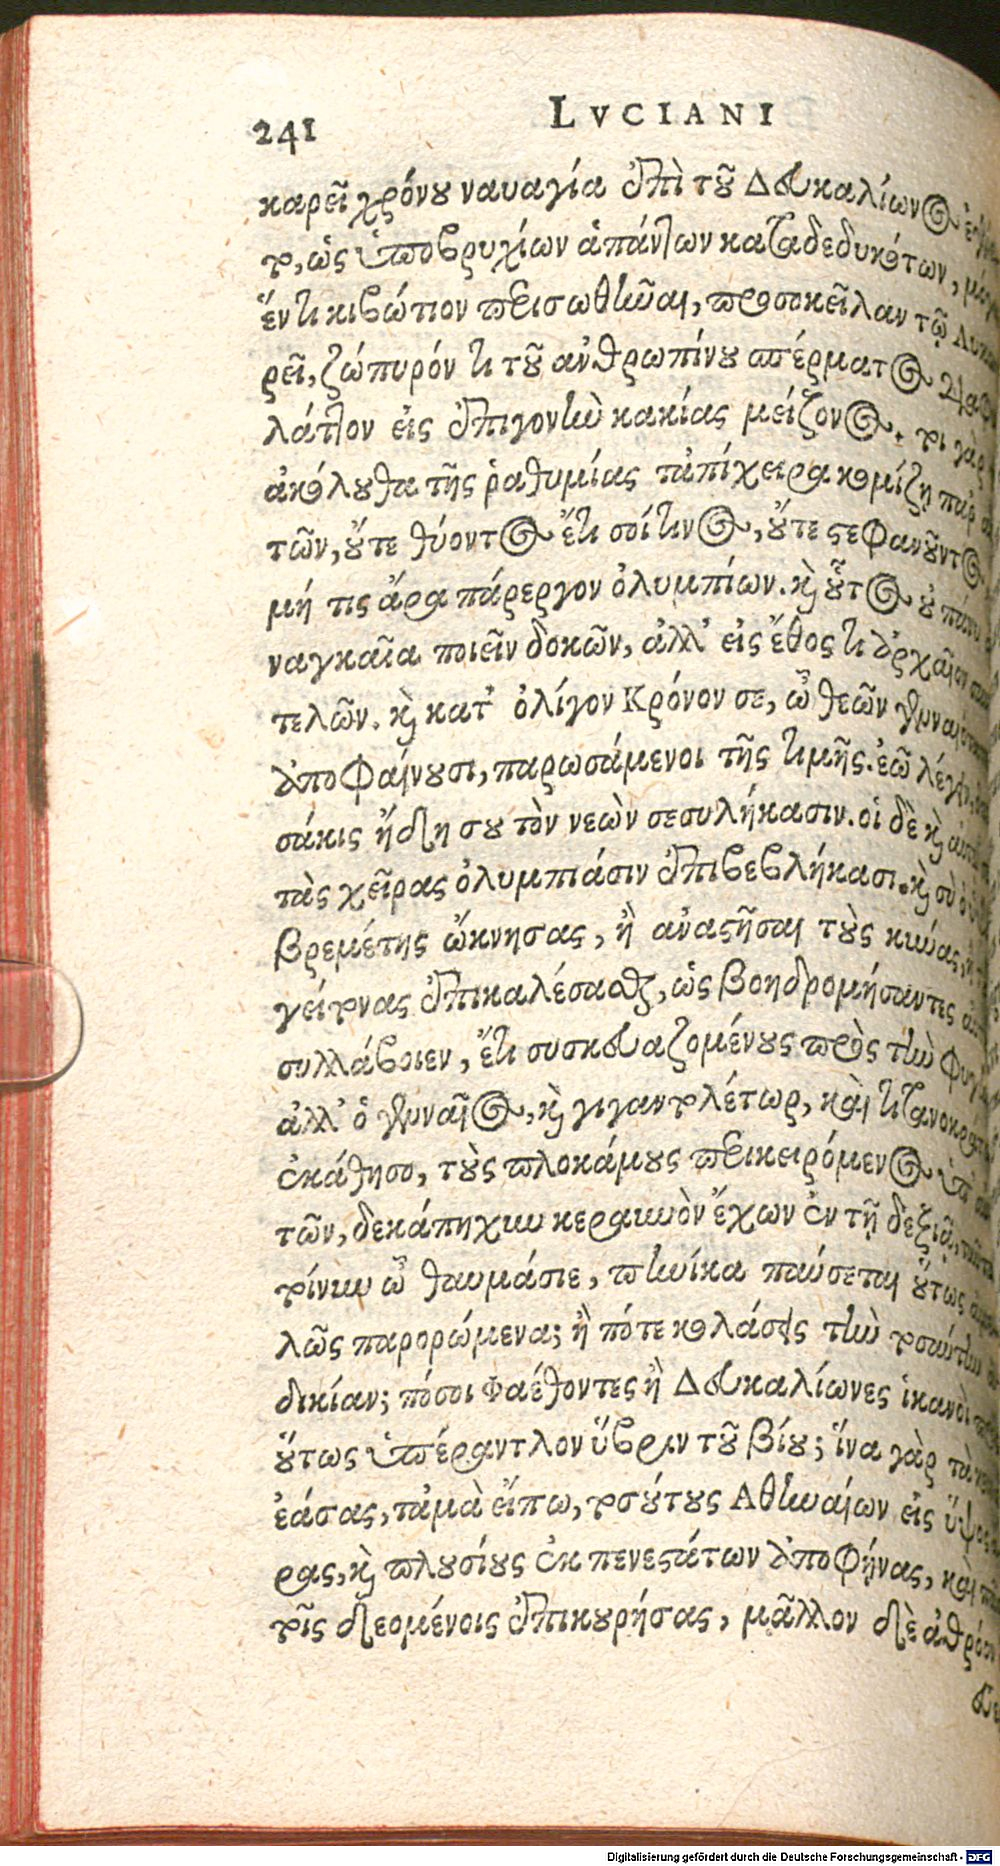 241 LVCIANI
καρεῖ χρόνου ναυαγία ἐπὶ τοῦ Δευκαλίωνος
το, ὡς ὑποβρυχίων ἁπάντων καταδεδυκότων,
ἕν τι κιβώτιον περισωθῆναι, προσοκεῖλαν τῷ
ρεῖ, ζώπυρόν τι τοῦ ἀνθρωπίνου σπέρματος
λάττον εἰς ἐπιγονὴν κακίας μείζονος. τοι γὰρ
ἀκόλουθα τῆς ῥαθυμίας τἀπίχειρα κομίζῃ παρ'
τῶν, οὔτε θύοντος ἔτι σοί τινος, οὔτε στεφανοῦντος
μή τις ἄρα πάρεργον ὀλυμπίων. καὶ οὗτος οὐ πάνυ
ναγκαῖα ποιεῖν δοκῶν, ἀλλ' εἰς ἔθος τι ἀρχαῖον
τελῶν. καὶ κατ' ὀλίγον Κρόνον σε, ὦ θεῶν
ἀποφαίνουσι, παρωσάμενοι τῆς τιμῆς. ἐῶ λέγειν,
σάκις ἤδη σου τὸν νεὼν σεσυλήκασιν. οἱ δὲ καὶ
τὰς χεῖρας ὀλυμπιάσιν ἐπιβεβλήκασι. καὶ σὺ
βρεμέτης ὤκνησας, ἢ ἀναστῆσαι τοὺς κύνας,
γείτονας ἐπικαλέσασθαι, ὡς βοηδρομήσαντες
συλλάβοιεν, ἔτι συσκευαζομένους πρὸς τὴν
ἀλλ' ὁ γενναῖος, καὶ γιγαντολέτωρ, καὶ
ἐκάθησο, τοὺς πλοκάμους περικειρόμενος ὑπ'
τῶν, δεκάπηχυν κεραυνὸν ἔχων ἐν τῇ δεξιᾷ,
τοίνυν ὦ θαυμάσιε, πηνίκα παύσεται οὕτως
λῶς παρορώμενα; ἢ πότε κολάσεις τὴν τοσαύτην
δικίαν; πόσοι Φαέθοντες ἢ Δευκαλίωνες ἱκανοὶ
οὕτως ὑπέραντλον ὕβριν τοῦ βίου; ἵνα γὰρ τὰ
ἐάσας, τἀμὰ εἴπω, τοσούτους Ἀθηναίων εἰς ὕψος
ρας, καὶ πλουσίους ἐκ πενεστάτων ἀποφήνας, καὶ
τοῖς δεομένοις ἐπικουρήσας, μᾶλλον δὲ
Digitalisierung gefördert durch die Deutsche Forschungsgemeinschaft - DFG